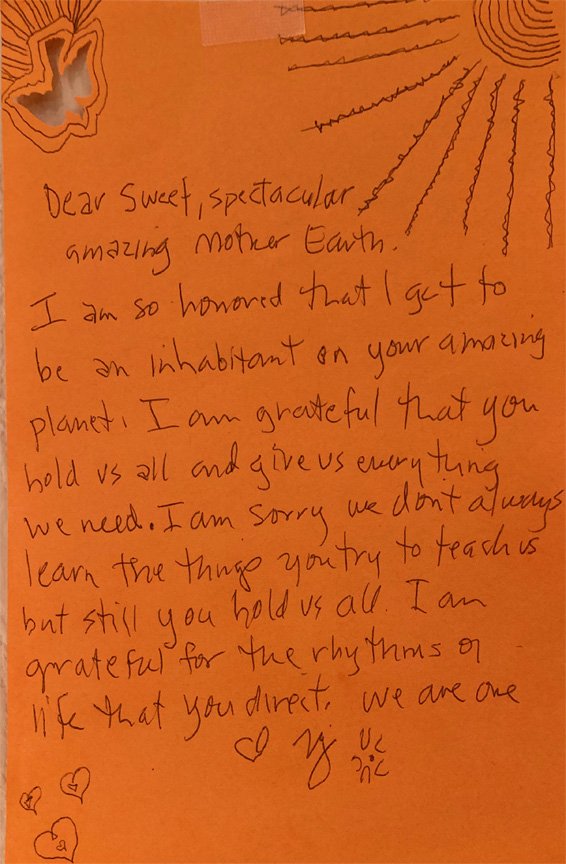 Dear Sweet, spectacular
amazing Mother Earth.
I am so honored that I get to
be an inhabitant on your amazing
planet. I am grateful that you
hold us all and give us everything
we need. I am sorry we don't always
learn the things you try to teach us
but still you hold us all. I am
grateful for the rhythms of
life that you direct. We are one